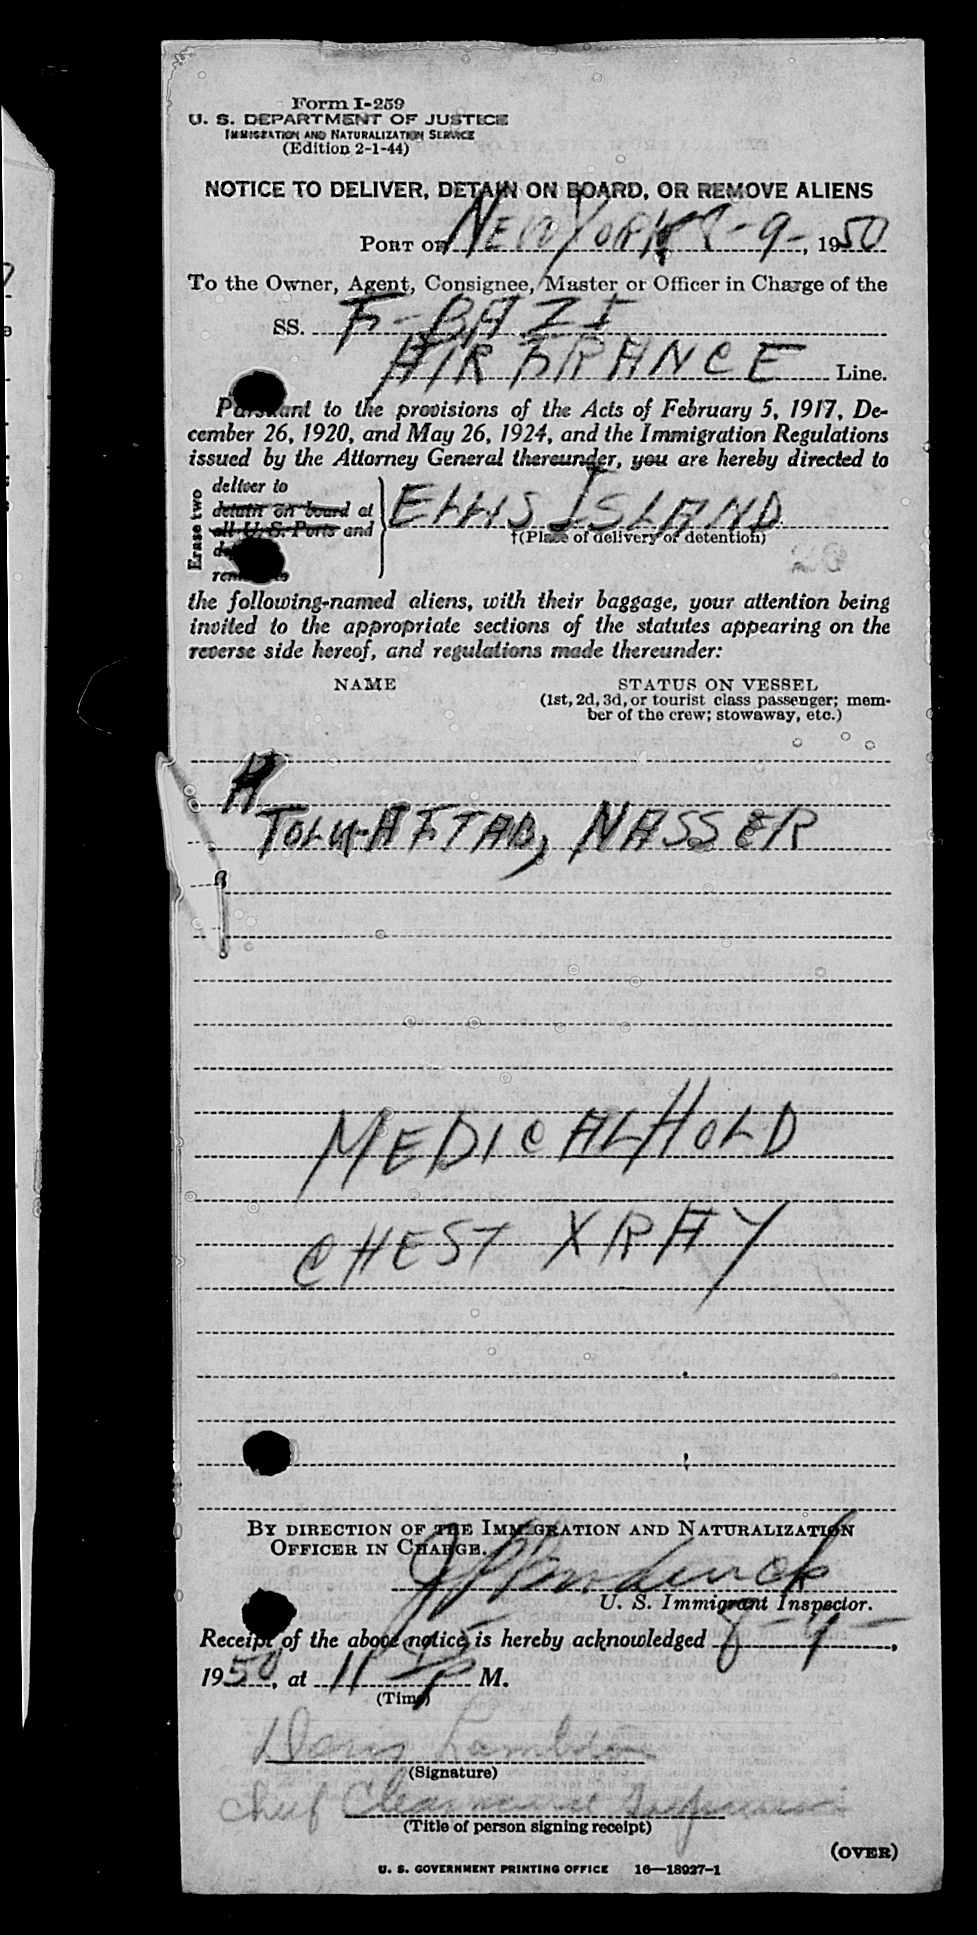 Form I-259
U. S. DEPARTMENT OF JUSTICE
IMMIGRATION AND NATURALIZATION SERVICE
(Edition 2-1-44)
NOTICE TO DELIVER, DETAIN ON BOARD, OR REMOVE ALIENS
PORT OF NEW YORK 8-9-, 1950
To the Owner, Agent, Consignee, Master or Officer in Charge of the
SS. F-BAZI
AIR FRANCE Line.
Pursuant to the provisions of the Acts of February 5, 1917, De-
cember 26, 1920, and May 26, 1924, and the Immigration Regulations
issued by the Attorney General thereunder, you are hereby directed to
Erase two
deliver to
detain on board at
all U. S. Ports and
ELLIS ISLAND
†(Place of delivery or detention)
the following-named aliens, with their baggage, your attention being
invited to the appropriate sections of the statutes appearing on the
reverse side hereof, and regulations made thereunder:
NAME
STATUS ON VESSEL
(1st, 2d, 3d, or tourist class passenger; mem-
ber of the crew; stowaway, etc.)
TOLU-AFTAB, NASSER
MEDICAL HOLD
CHEST XRAY
BY DIRECTION OF THE IMMIGRATION AND NATURALIZATION
OFFICER IN CHARGE.
U. S. Immigrant Inspector.
Receipt of the above notice is hereby acknowledged 8-9-,
1950, at 11 45 P M.
(Time)
Doris
(Signature)
Chief Clearance
(Title of person signing receipt)
(OVER)
U. S. GOVERNMENT PRINTING OFFICE 16—18927-1